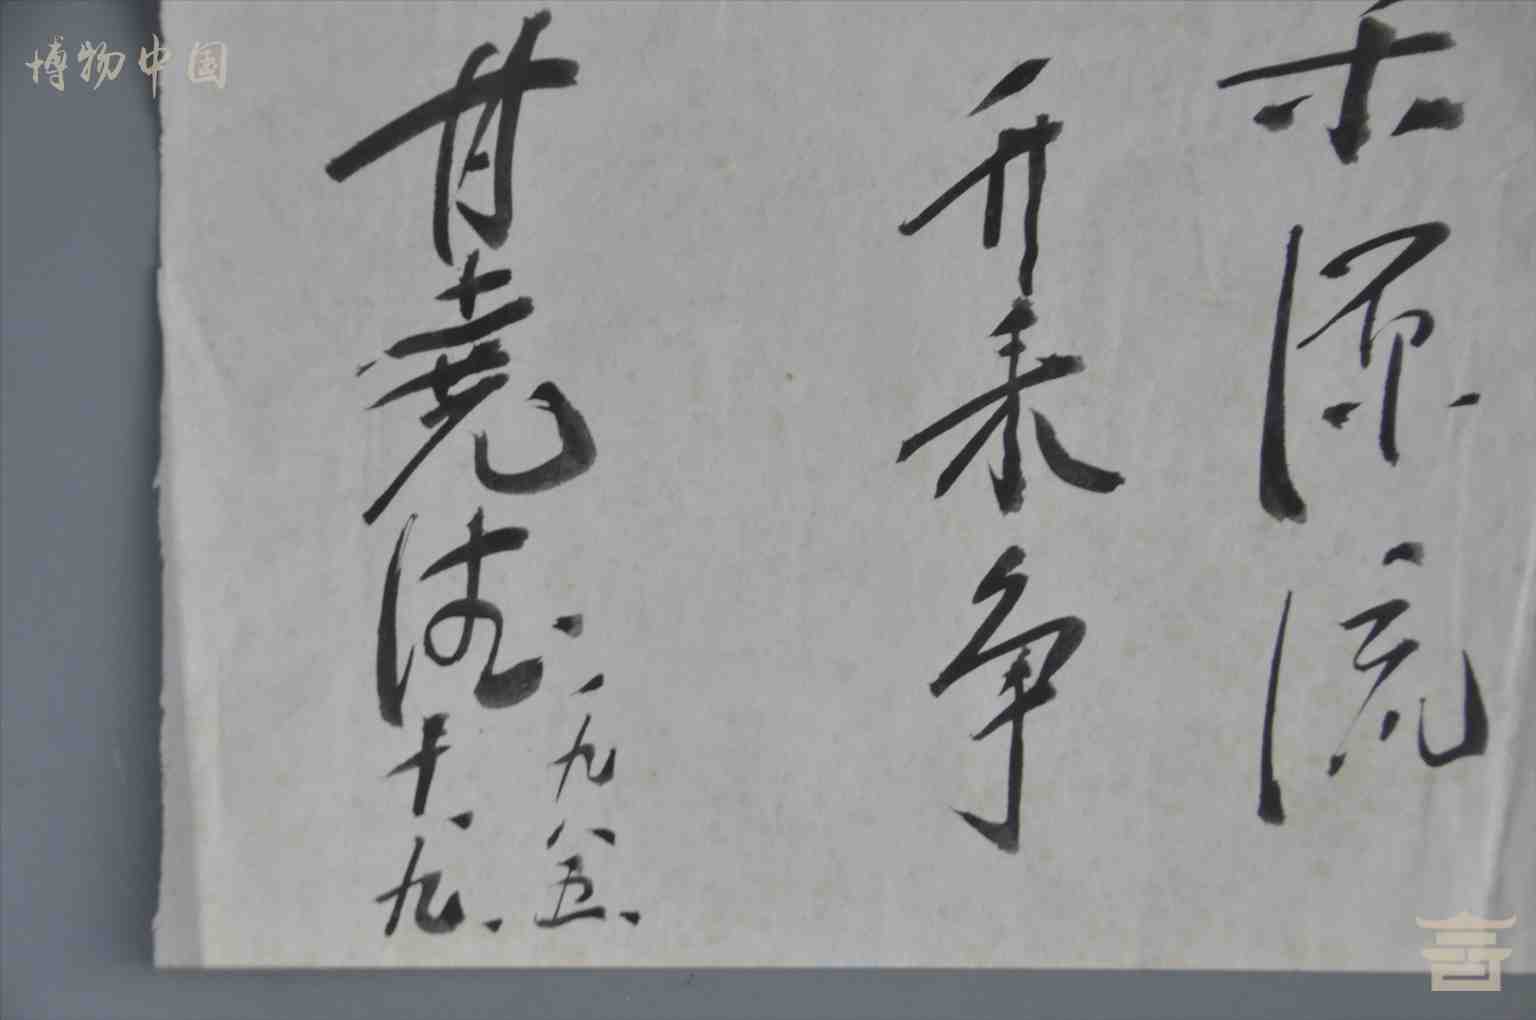 博物中国
源流
开来争
甘尧
一九八五、
十、九、